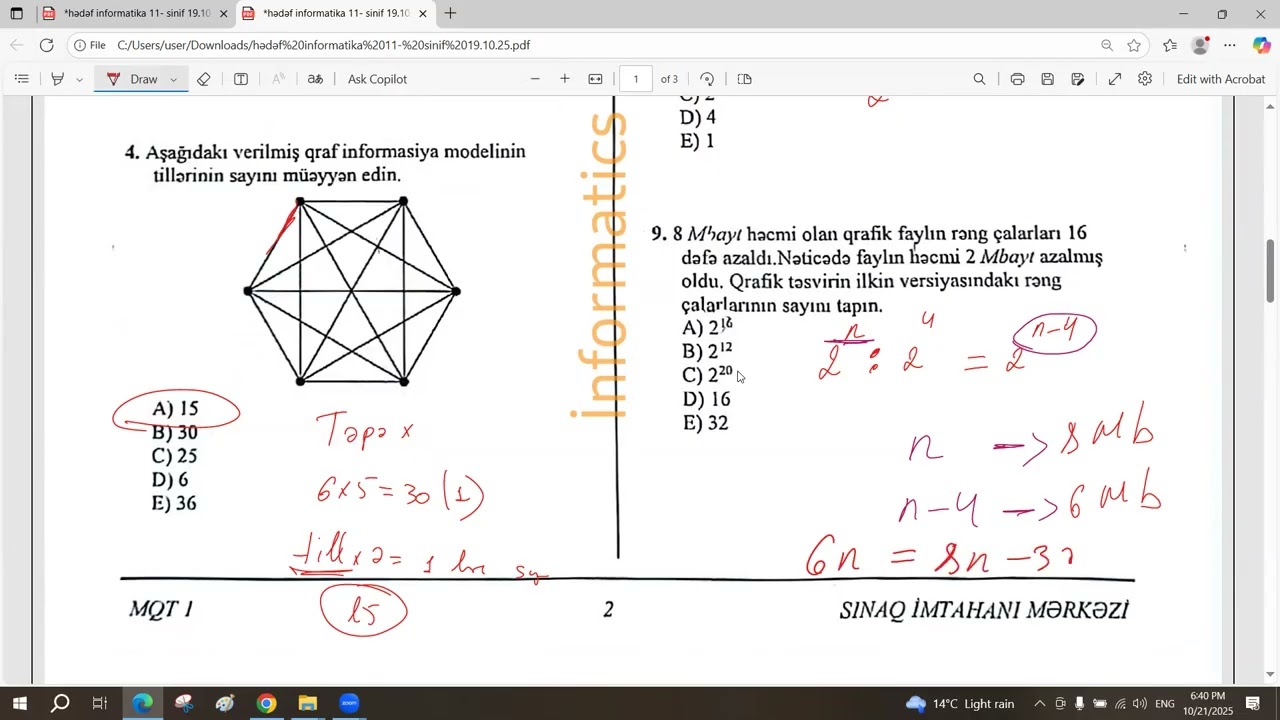 *hədəf informatika 11- sinif 19.10
*hədəf informatika 11- sinif 19.10
File C:/Users/user/Downloads/hədəf%20informatika%2011-%20sinif%2019.10.25.pdf
Draw
Ask Copilot
1 of 3
Edit with Acrobat
4. Aşağıdakı verilmiş qraf informasiya modelinin
tillərinin sayını müəyyən edin.
A) 15
B) 30
C) 25
D) 6
E) 36
Təpə x
6x5=30 (1)
till x 2 = 1
15
informatics
D) 4
E) 1
9. 8 Mbayt həcmi olan qrafik faylın rəng çalarları 16
dəfə azaldı.Nəticədə faylın həcmi 2 Mbayt azalmış
oldu. Qrafik təsvirin ilkin versiyasındakı rəng
çalarlarının sayını tapın.
A) 2¹⁶
B) 2¹²
C) 2²⁰
D) 16
E) 32
2ⁿ : 2⁴ = 2ⁿ⁻⁴
n -> 8 Mb
n-4 -> 6 Mb
6n = 8n - 32
MQT 1
2
SINAQ İMTAHANI MƏRKƏZİ
zoom
14°C Light rain
ENG
6:40 PM
10/21/2025